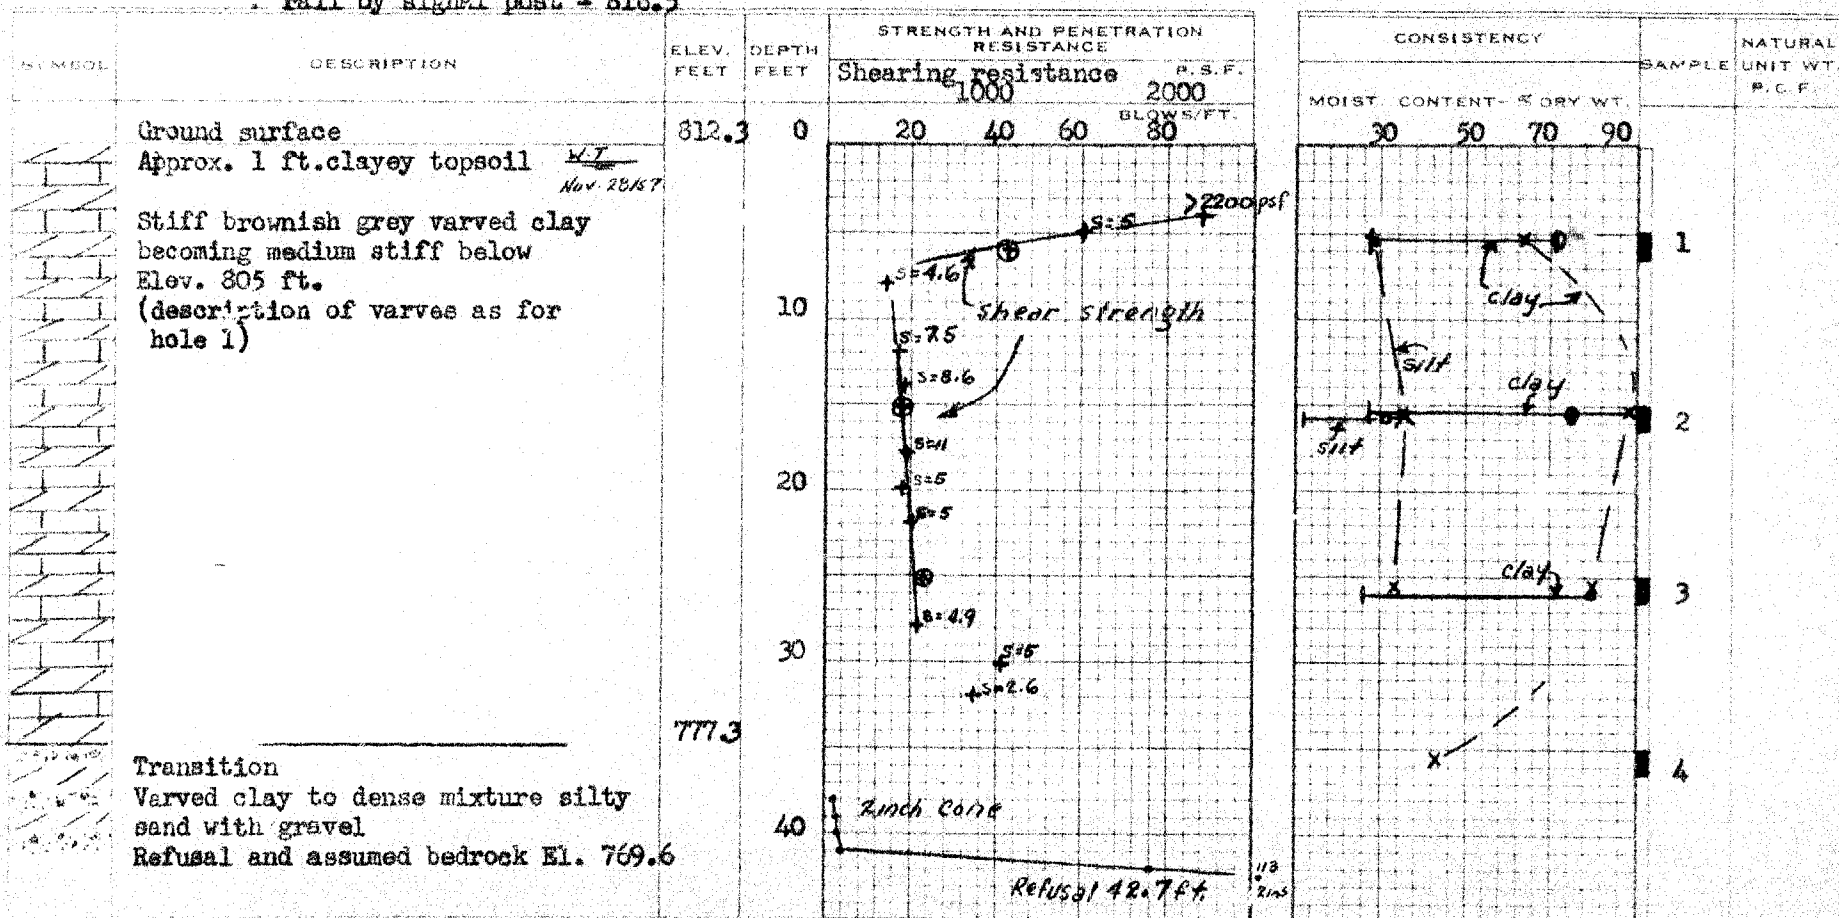 rail by signal post = 818.5
SYMBOL
DESCRIPTION
ELEV. FEET
DEPTH FEET
STRENGTH AND PENETRATION RESISTANCE
Shearing resistance P.S.F.
1000 2000
BLOWS/FT.
20 40 60 80
CONSISTENCY
MOIST. CONTENT - % DRY WT.
30 50 70 90
SAMPLE
NATURAL UNIT WT. P.C.F.
Ground surface 812.3 0
Approx. 1 ft.clayey topsoil
W.T
Nov. 28/57
Stiff brownish grey varved clay
becoming medium stiff below
Elev. 805 ft.
(description of varves as for
hole 1)
10
20
30
777.3
Transition
Varved clay to dense mixture silty
sand with gravel
40
Refusal and assumed bedrock El. 769.6
>2200psf
S=5
S=4.6
Shear strength
S=7.5
S=8.6
S=11
S=5
S=5
S=4.9
S=5
S=2.6
2inch Cone
Refusal 42.7ft.
113
2ins
clay
silt
clay
silt
clay
1
2
3
4